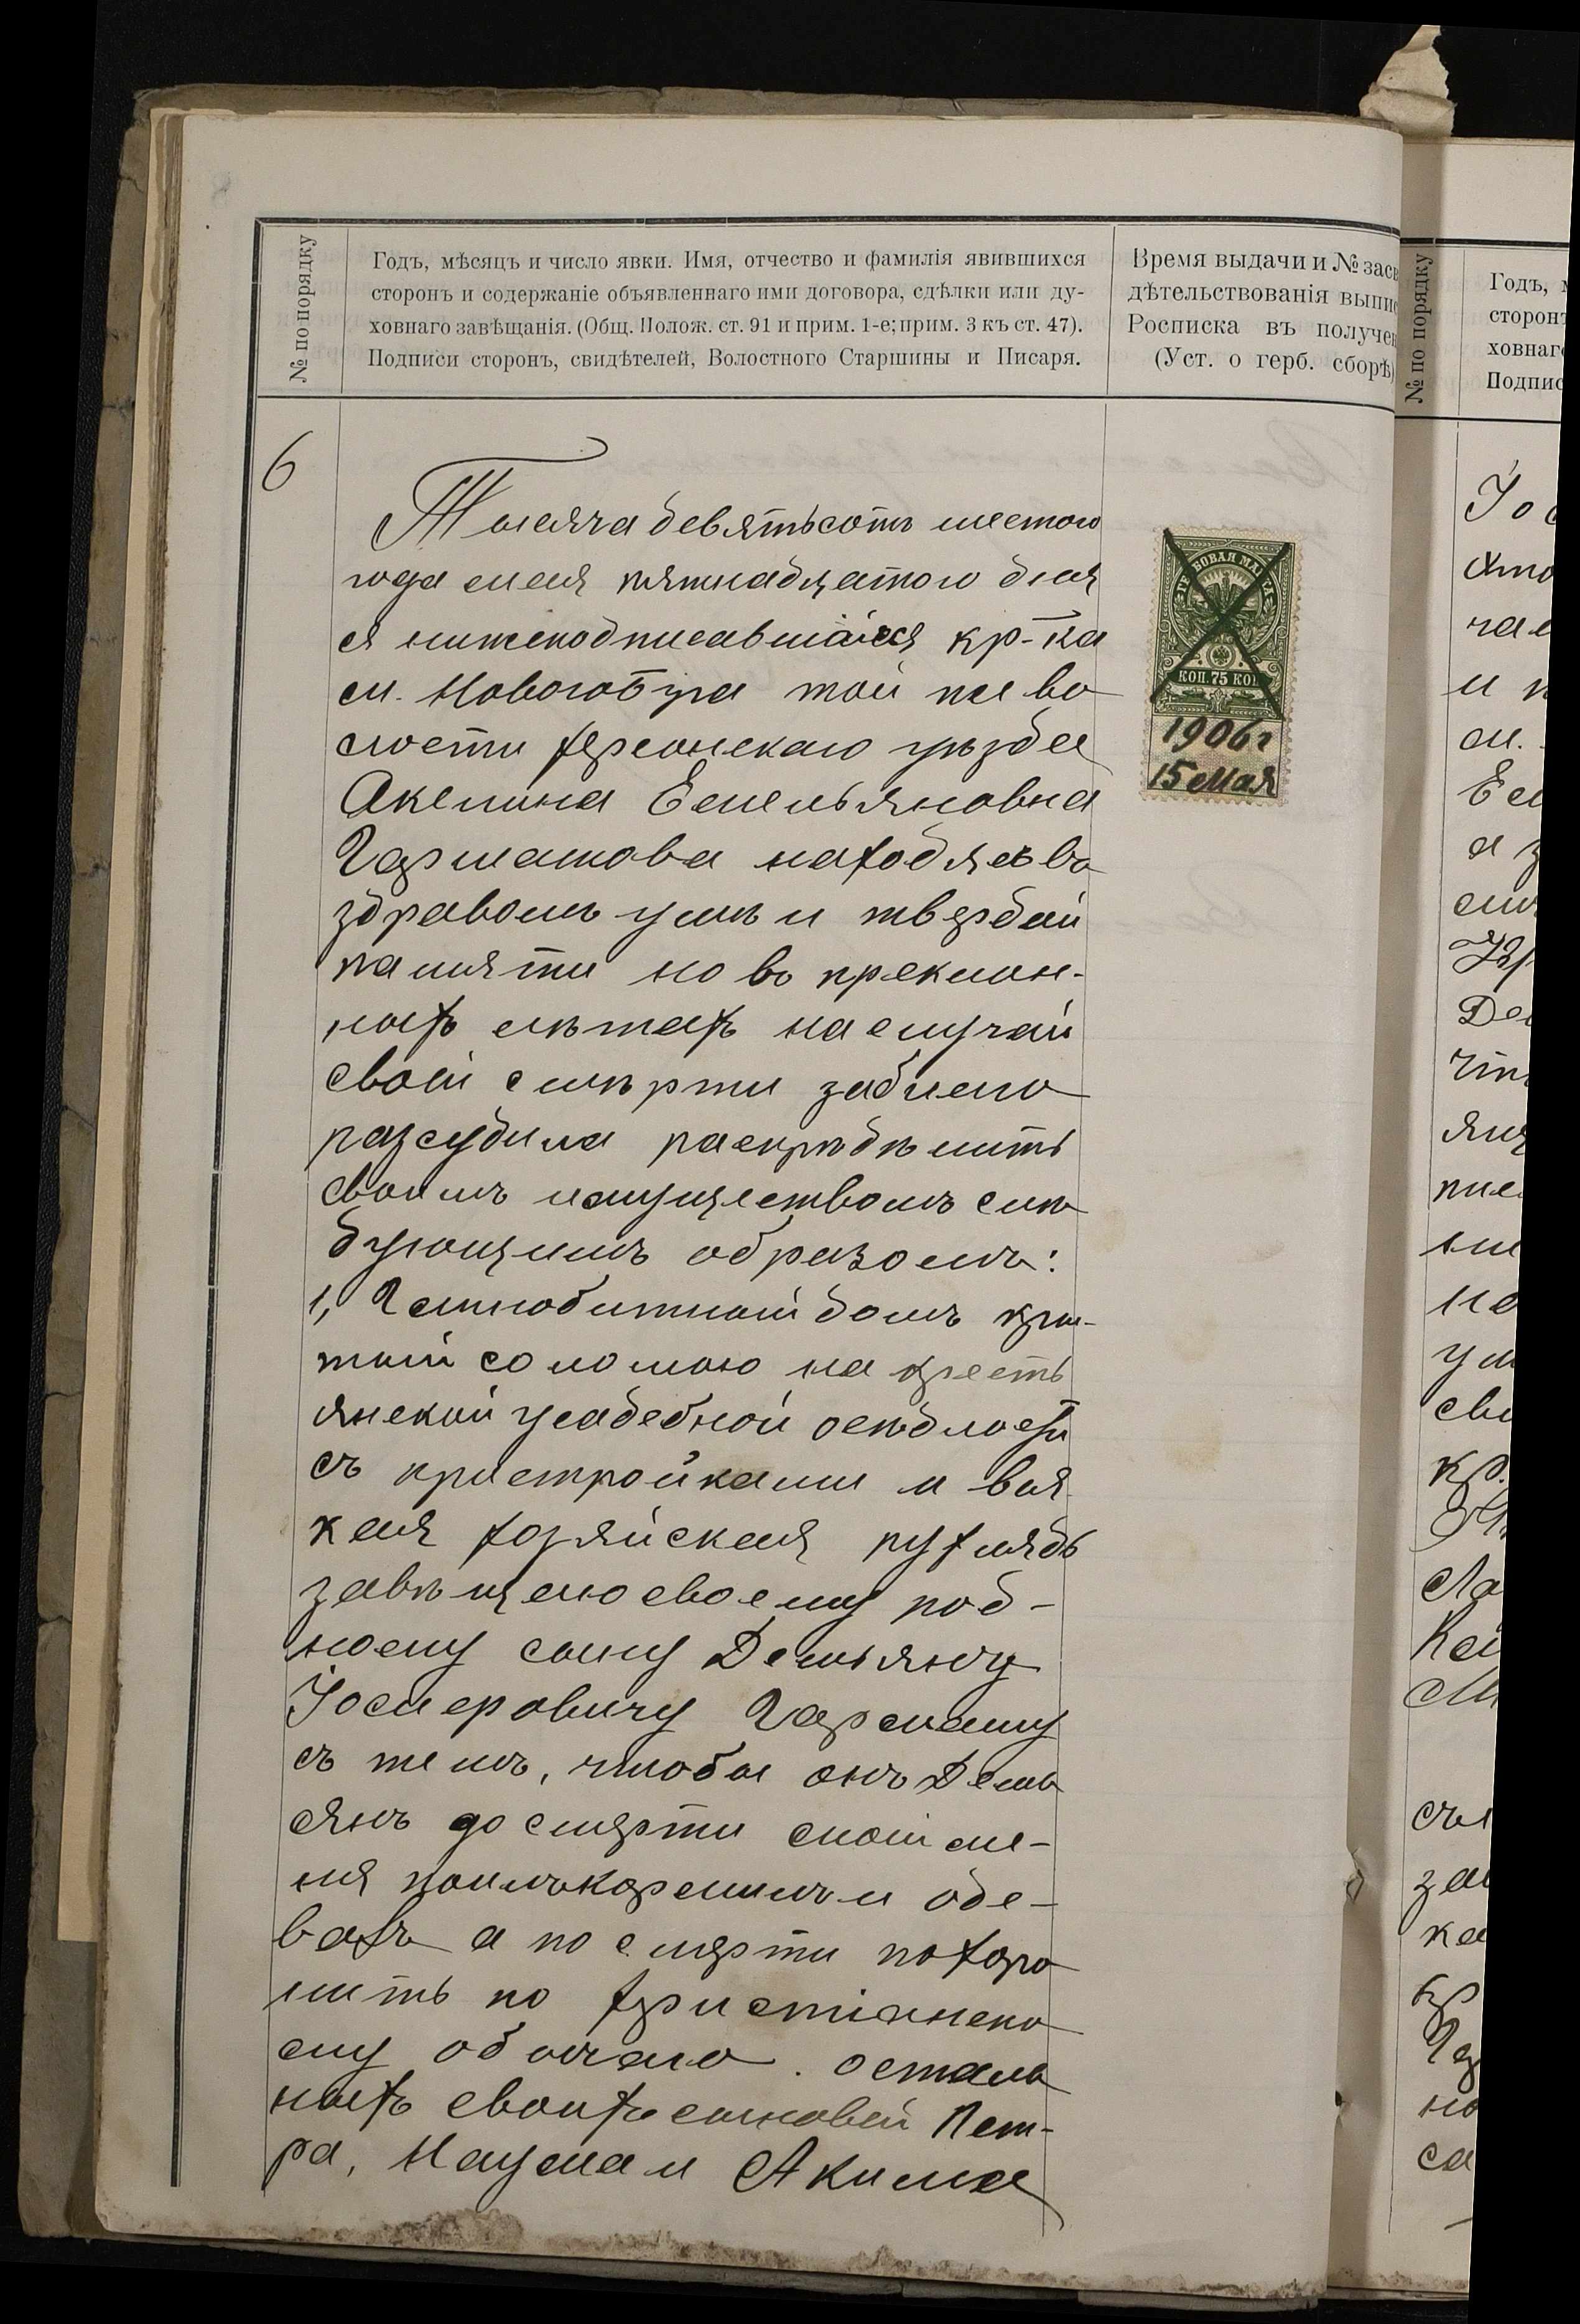 № по порядку
Годъ, мѣсяцъ и число явки. Имя, отчество и фамилія явившихся
сторонъ и содержаніе объявленнаго ими договора, сдѣлки или ду-
ховнаго завѣщанія. (Общ. Полож. ст. 91 и прим. 1-е; прим. 3 къ ст. 47).
Подписи сторонъ, свидѣтелей, Волостного Старшины и Писаря.
Время выдачи и № засв
дѣтельствованія выпис
Росписка въ получен
(Уст. о герб. сборѣ)
6
Тысяча девятьсотъ шестого
года мая пятнадцатого дня
я нижеподписавшаяся кр-ка
м. Новогобуга той же во
лости Херсонскаго уѣзда
Акилина Емельяновна
Гарматова находясь въ
здравомъ умѣ и твердой
памяти но въ преклон-
ныхъ лѣтахъ на случай
своей смѣрти заблаго
разсудила распрѣдѣлить
своимъ имуществомъ слѣ
дующимъ образомъ:
1, Чамнобитный домъ кры-
тый соломою на кресть
янской усадебной осѣдлости
съ пристройками и вся
кая хозяйская рухлядь
завѣщаю своему род-
ному сыну Демьяну
Іосиеровичу Гармашу
съ темъ, чтобы онъ Демь
янъ до смерти моей ме-
ня поилъ кормилъ и оде-
валъ а по смерти похоро
нить по христіанско
му обычаю. осталь
ныхъ своихъ сыновей Пет-
ра, Наума и Акима
ГЕРБОВАЯ МАРКА
КОП. 75 КОП.
1906 г
15 мая
№ по порядку
Годъ, м
сторонъ
ховнаго
Подпис